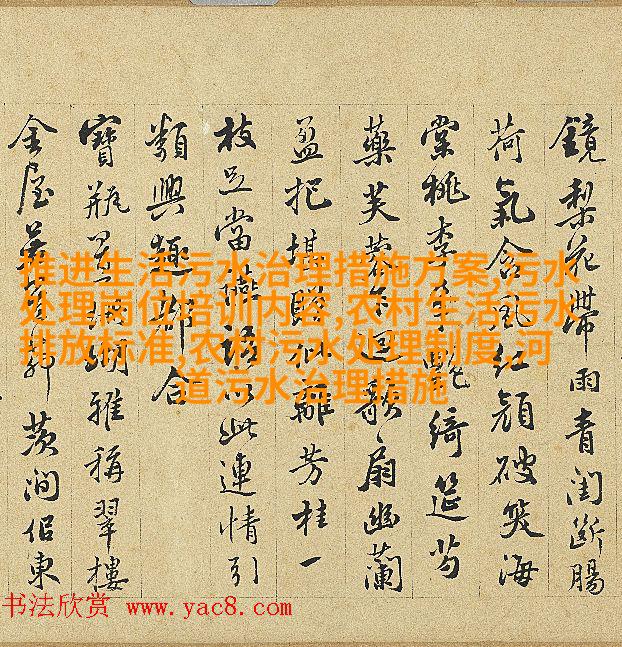 鏡梨花帶雨青閨斷腸
荷氣含風紅顔破笑海
棠桃李艷綺筵芍
藥芙蓉迴歌扇幽蘭
盈把堪贈仳離芳桂一
枝足當語以此連情引
類興趣都合
寶瓶瑚雅稱翠樓
金屋茨澗侶東
推进生活污水治理措施方案,污水
处理岗位培训内容,农村生活污水
排放标准,农村污水处理制度,河
道污水治理措施
书法欣赏 www.yac8.com